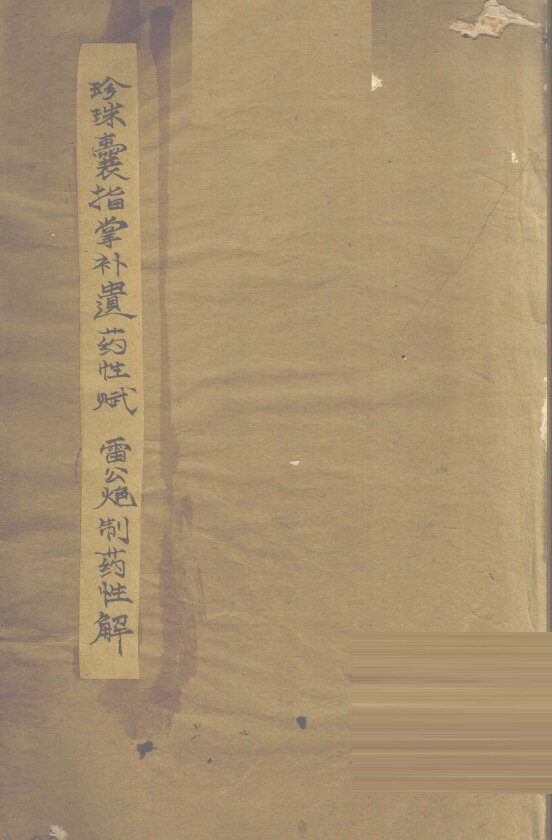 珍珠囊指掌补遺药性赋 雷公炮制药性解